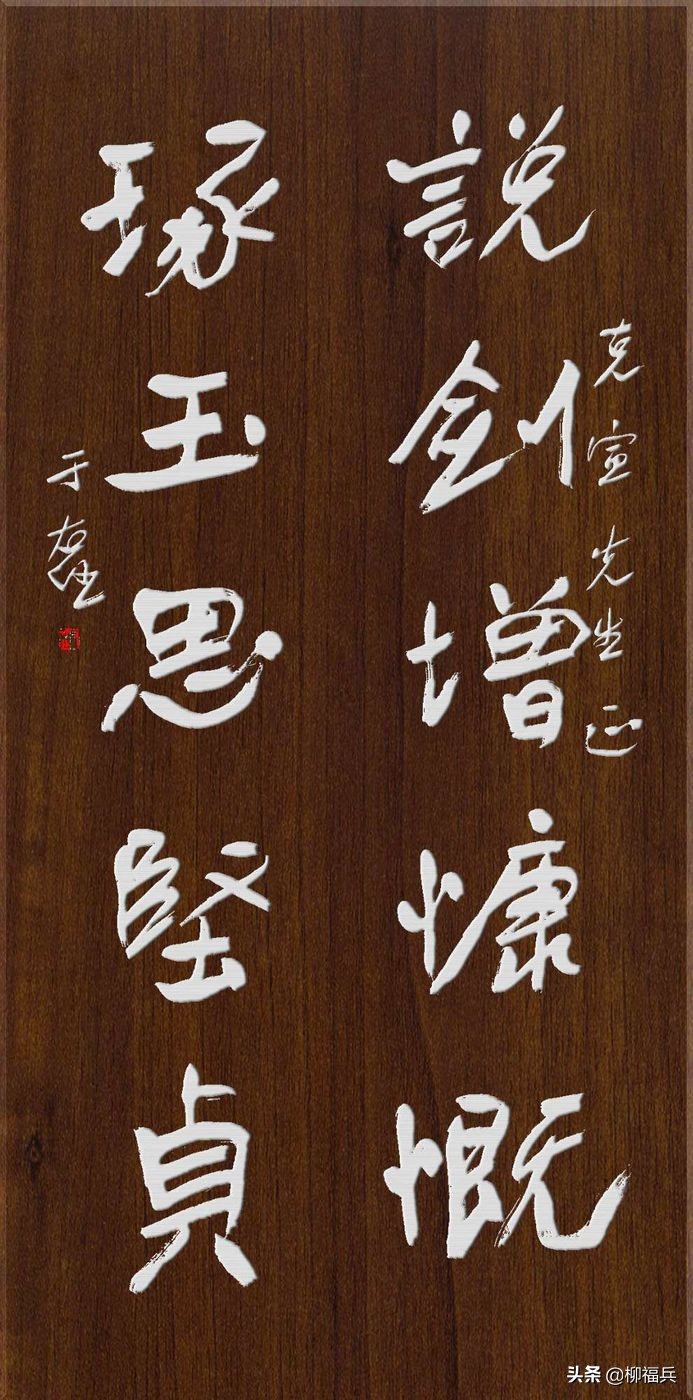 說劍增慷慨
克宣先生正
琢玉思堅貞
于右任
头条 @柳福兵